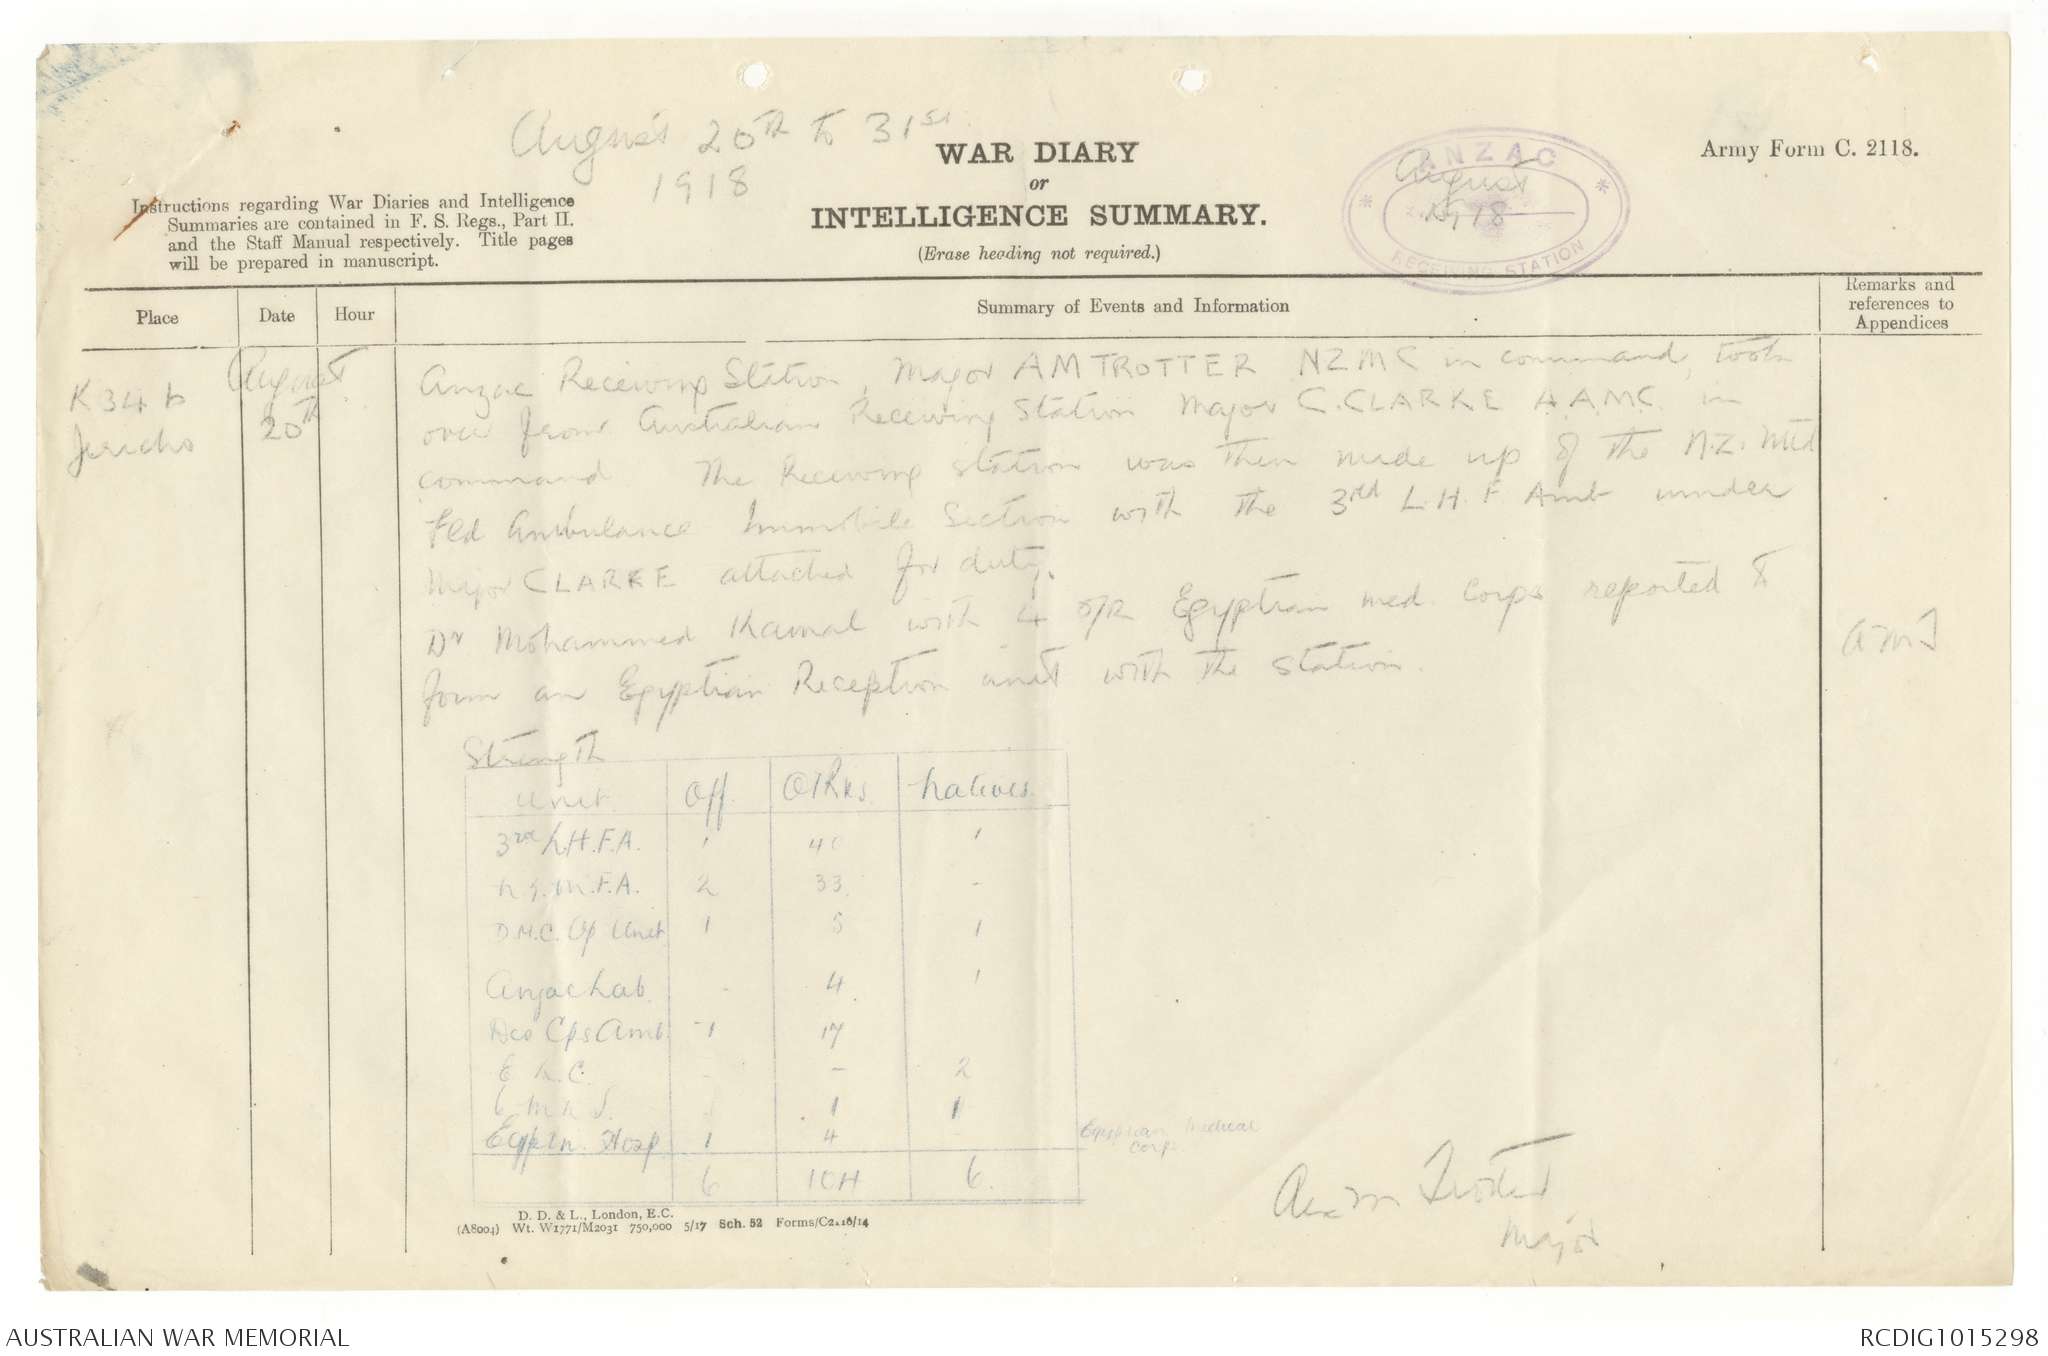 August 20th to 31st
1918
WAR DIARY
or
INTELLIGENCE SUMMARY.
(Erase heading not required.)
Army Form C. 2118.
Instructions regarding War Diaries and Intelligence
Summaries are contained in F. S. Regs., Part II.
and the Staff Manual respectively. Title pages
will be prepared in manuscript.
ANZAC
August
1918
RECEIVING STATION
Place Date Hour Summary of Events and Information Remarks and
references to
Appendices
K 34 b
Jericho
August
20th
Anzac Receiving Station, Major A M TROTTER NZMC in command, took
over from Australian Receiving Station Major C. CLARKE A.A.M.C. in
command. The Receiving station was then made up of the N.Z. Mtd
Fld Ambulance Immobile Section with the 3rd L.H.F. Amb under
Major CLARKE attached for duty.
Dr Mohammed Kamal with 4 O/R Egyptian med. Corps reported to
form an Egyptian Reception unit with the station.
A M T
Strength
Unit Off. O/Rks. Natives.
3rd L.H.F.A. 1 40 1
N.Z.M.F.A. 2 33 -
D.M.C. Op Unit 1 5 1
Anzac Lab. - 4 1
Des Cps Amb. 1 17
E L.C. - - 2
1 1
Egyptn. Hosp 1 4 -
Egyptian Medical
Corps
6 104 6.
Alex M Trotter
Major
D. D. & L., London, E.C.
(A8004) Wt. W1771/M2031 750,000 5/17 Sch. 52 Forms/C2118/14
AUSTRALIAN WAR MEMORIAL
RCDIG1015298